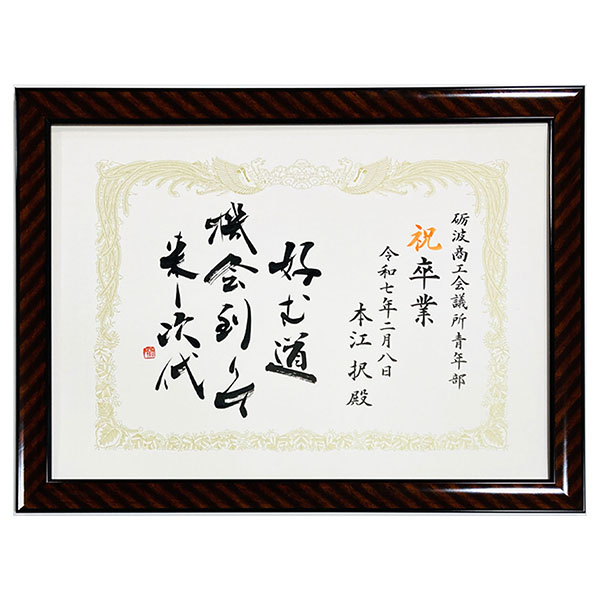 砺波商工会議所青年部
祝卒業
令和七年二月八日
本江択殿
好む道
機会到りて
来し次代